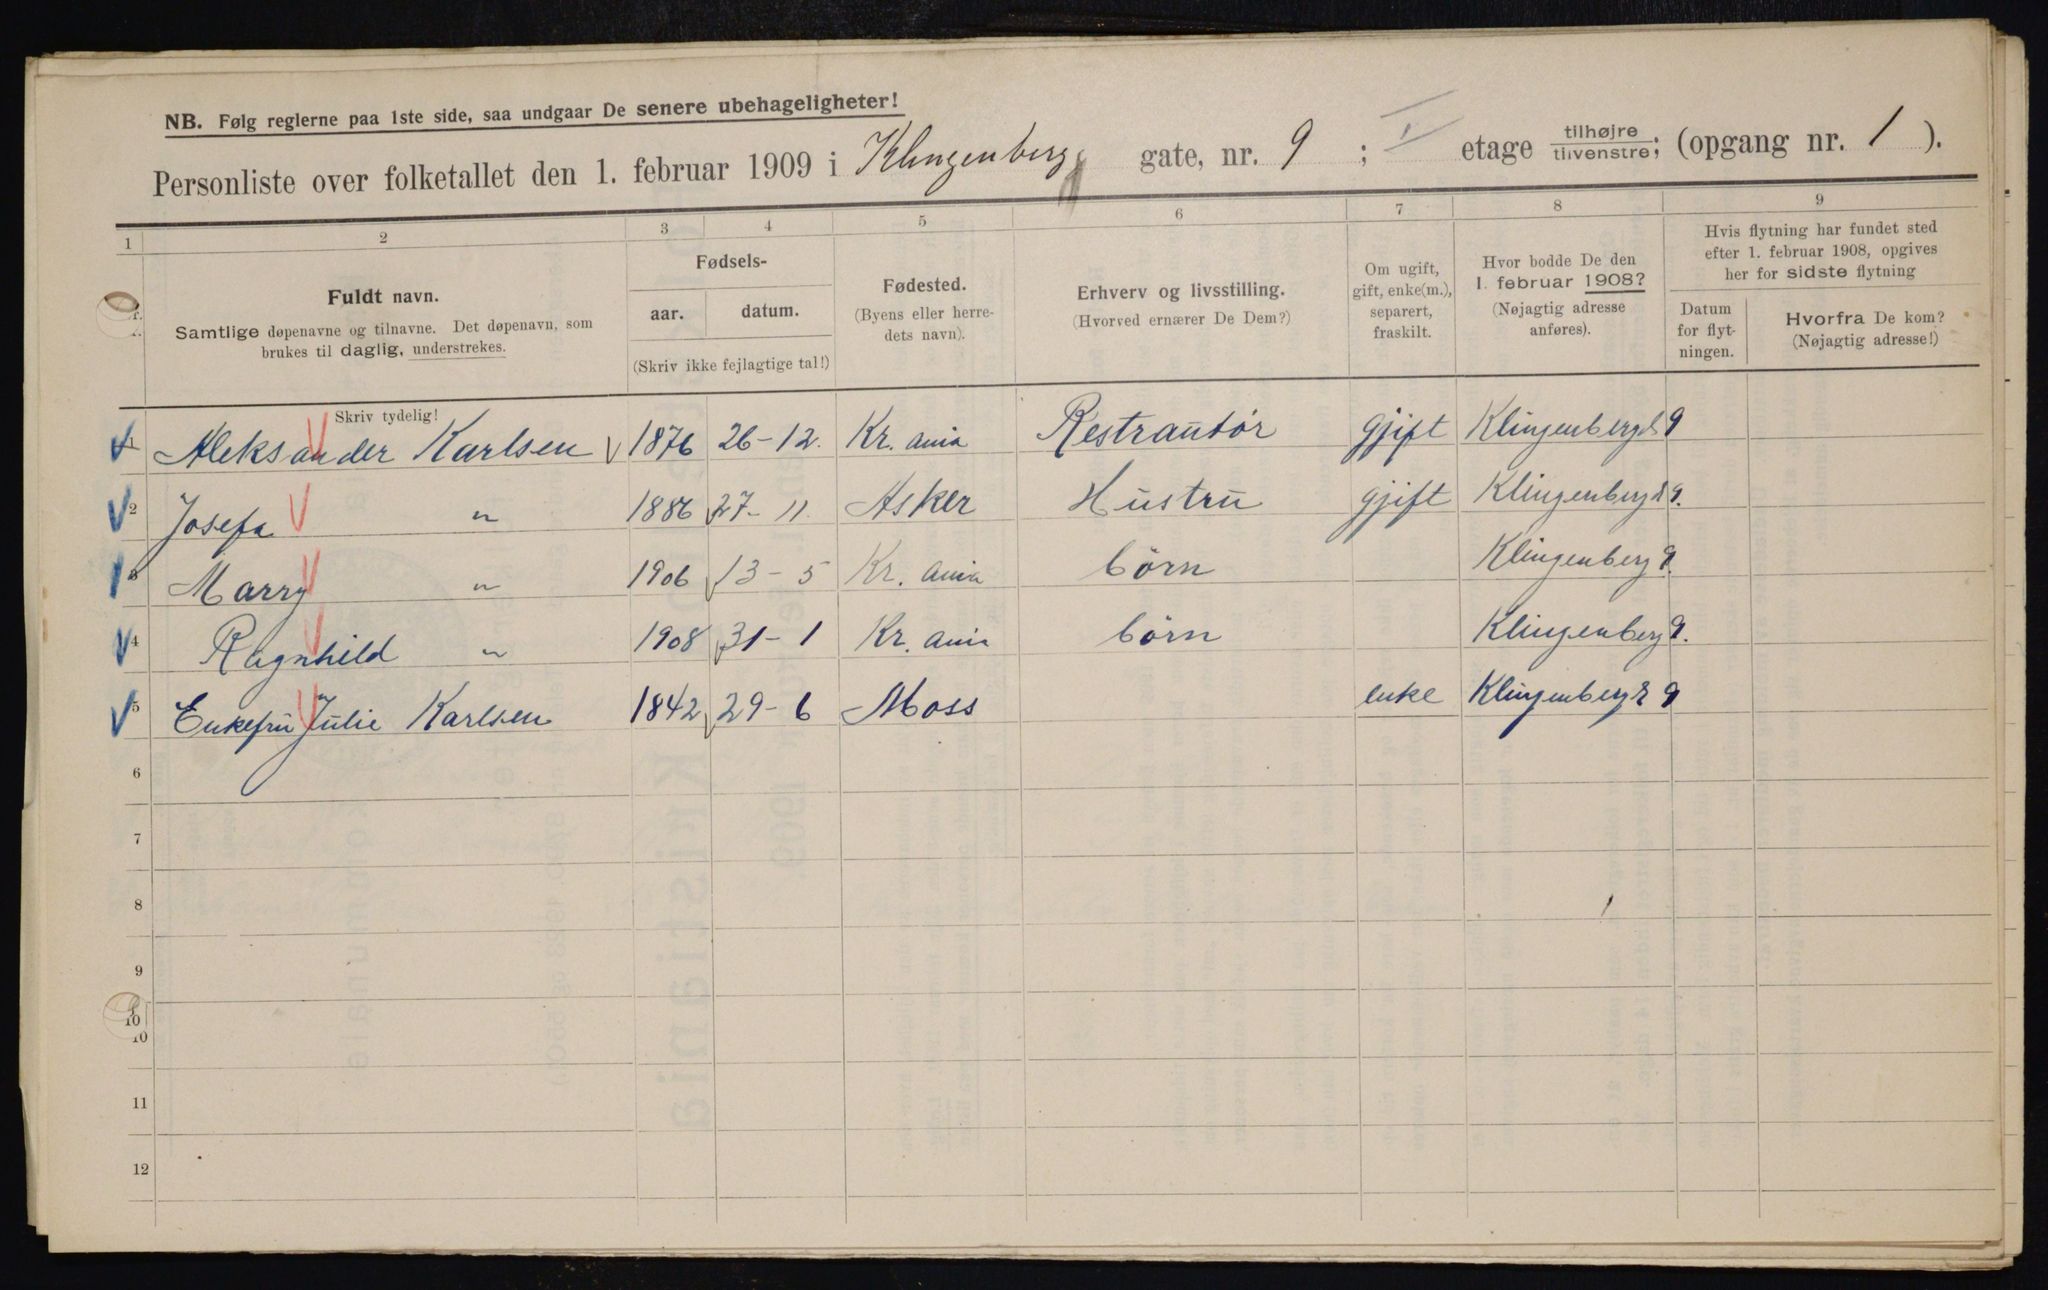 NB. Følg reglerne paa 1ste side, saa undgaar De senere ubehageligheter!
Personliste over folketallet den 1. februar 1909 i Klingenberg gate, nr. 9 ; etage tilhøjre tilvenstre; (opgang nr. 1 ).
1 2 3 4 5 6 7 8 9
Fuldt navn.
Samtlige døpenavne og tilnavne. Det døpenavn, som
brukes til daglig, understrekes.
Skriv tydelig!
Fødsels-
aar. datum.
(Skriv ikke fejlagtige tal!)
Fødested.
(Byens eller herre-
dets navn).
Erhverv og livsstilling.
(Hvorved ernærer De Dem?)
Om ugift,
gift, enke(m.),
separert,
fraskilt.
Hvor bodde De den
1. februar 1908?
(Nøjagtig adresse
anføres).
Hvis flytning har fundet sted
efter 1. februar 1908, opgives
her for sidste flytning
Datum
for flyt-
ningen.
Hvorfra De kom?
(Nøjagtig adresse!)
1 Aleksander Karlsen 1876 26-12. Kr. ania Restrantør gjift Klingenbergd 9
2 Josefa " 1886 27-11. Asker Hustru gjift Klingenbergd 9.
3 Marry " 1906 13-5 Kr. ania börn Klingenberg 9.
4 Ragnhild " 1908 31-1 Kr. ania börn Klingenberg 9.
5 Enkefru Julie Karlsen 1842 29-6 Moss enke Klingenberg 9
6
7
8
9
10
10
11
12